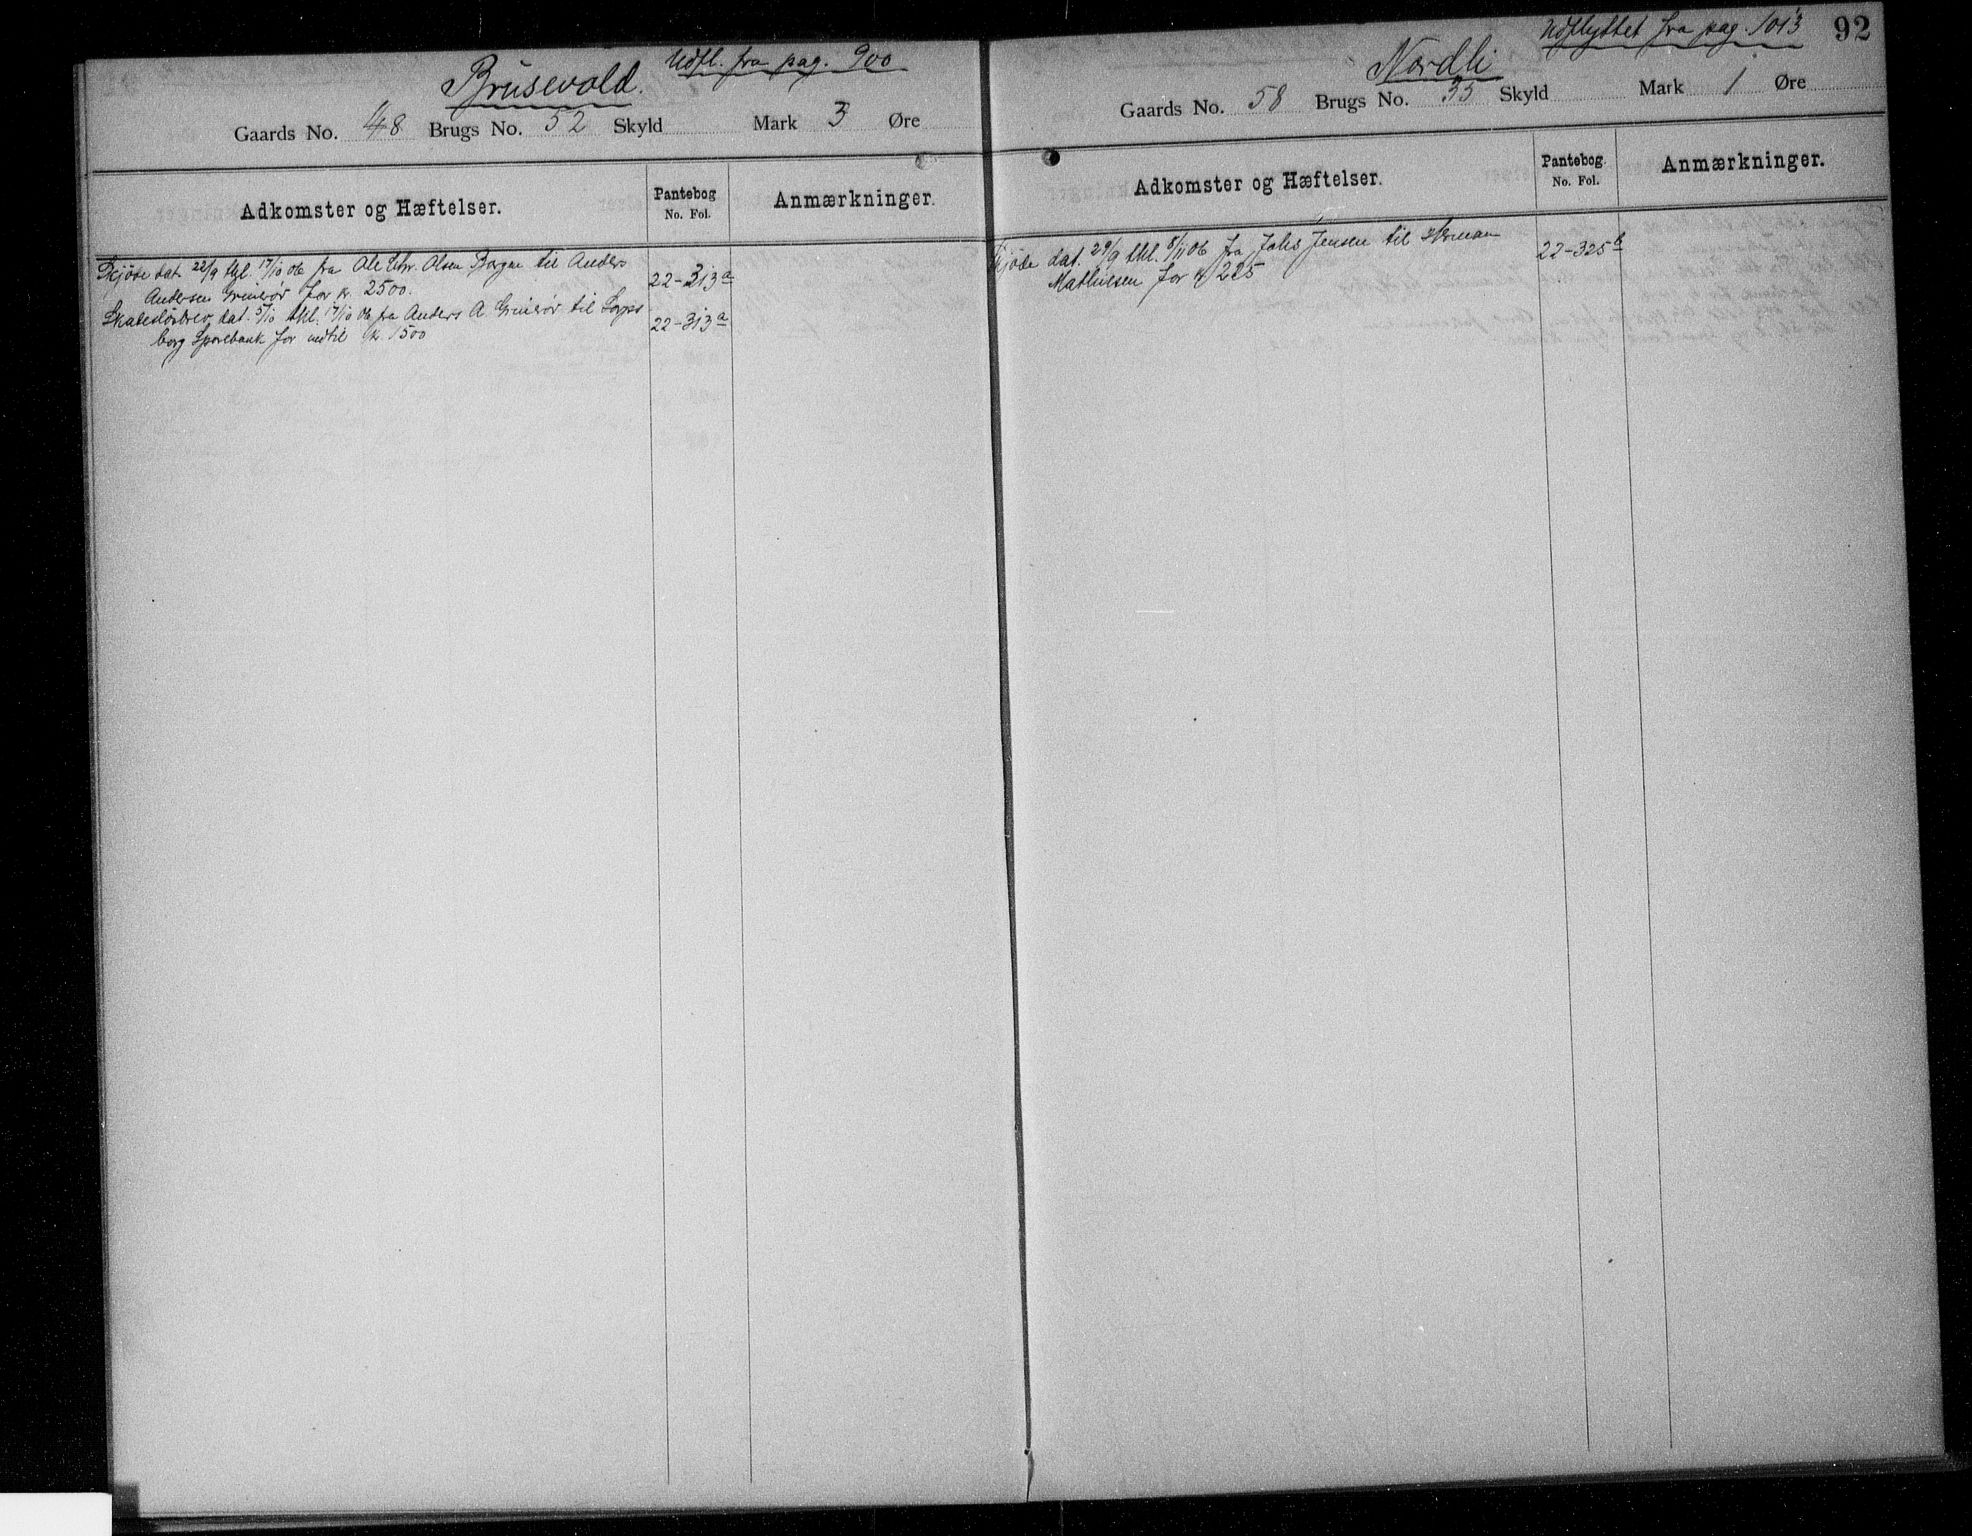 Udfl. fra pag. 900
Brusevold.
Gaards No. 48 Brugs No. 52 Skyld Mark 3 Øre
Adkomster og Hæftelser. Pantebog No. Fol. Anmærkninger.
Skjøde dat. 22/9 thl. 17/10 06 fra Ole Chr. Olsen Borgen til Anders 22-313a
Andersen Grinsrør for kr. 2500.
Skadesløsbrev, dat. 5/10 thl. 17/10 06 fra Anders A. Grinsrør til Sarps 22-313a
borg Sparebank for indtil kr 1500
Udflyttet fra pag. 1013
92
Nordli
Gaards No. 58 Brugs No. 35 Skyld Mark 1 Øre
Adkomster og Hæftelser. Pantebog No. Fol. Anmærkninger.
Skjøde dat. 29/9 thl. 8/11 06 fra Johs Jensen til Herman 22-325b
Mathiesen for kr 225